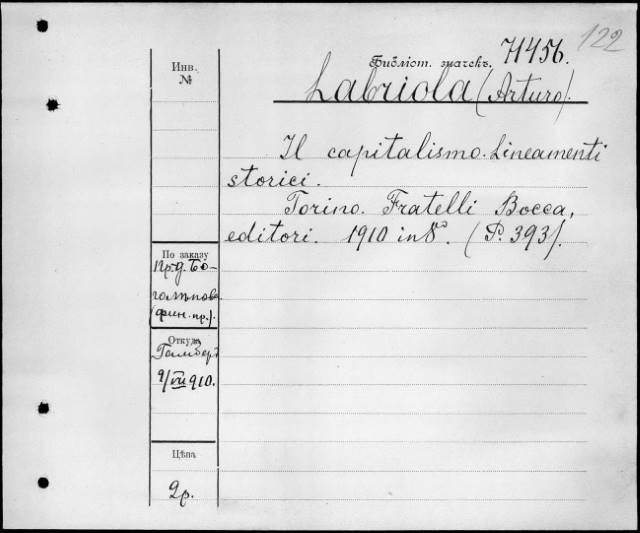 122
Инв.
№
Библіот. 71456.
Labriola (Arturo).
Il capitalismo. Lineamenti
storici.
Torino. Fratelli Bocca,
editori. 1910 in 8°. (P. 393).
По заказу
(фин. пр.).
Откуда
9/VII 910.
Цѣна
2р.